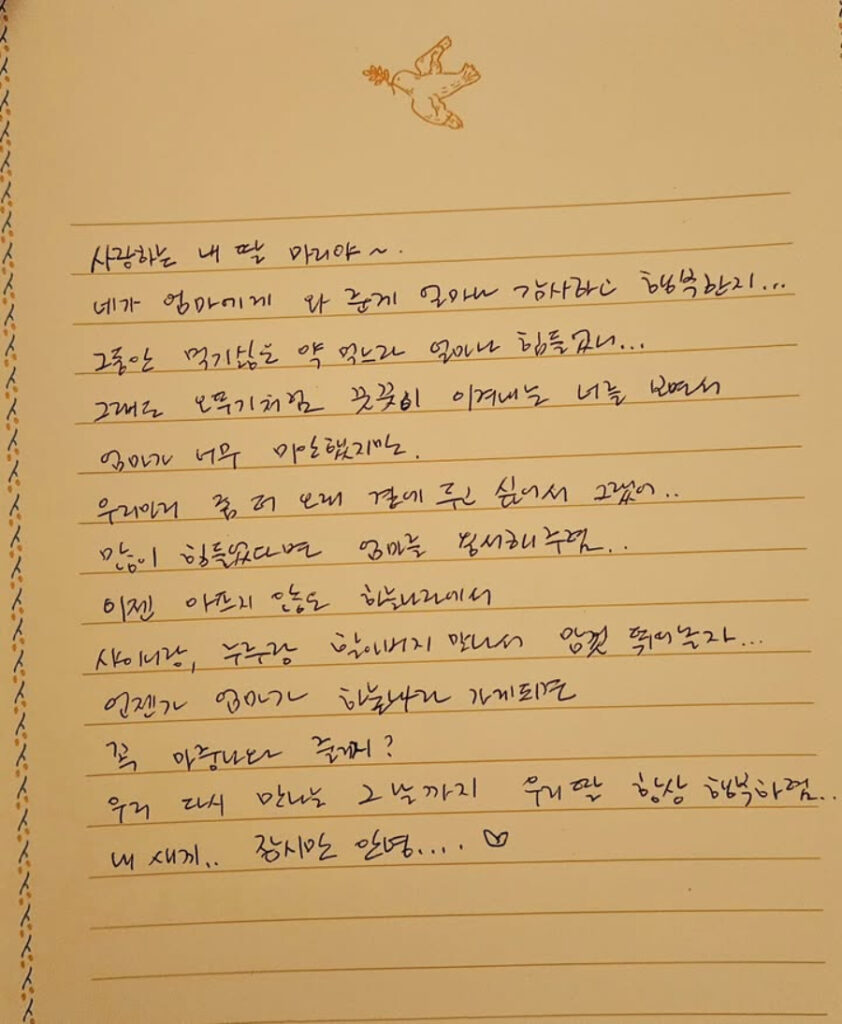 사랑하는 내 딸 마리야~.
네가 엄마에게 와 준게 얼마나 감사하고 행복한지...
그동안 먹기싫은 약 먹느라 얼마나 힘들었니...
그래도 오뚜기처럼 꿋꿋이 이겨내는 너를 보면서
엄마가 너무 미안했지만.
우리마리 좀 더 오래 곁에 두고 싶어서 그랬어..
많이 힘들었다면 엄마를 용서해주렴..
이젠 아프지 않은 하늘나라에서
샤이니랑, 누루랑 할아버지 만나서 맘껏 뛰어놀자...
언젠가 엄마가 하늘나라 가게되면
꼭 마중나와 줄꺼지?
우리 다시 만나는 그날까지 우리딸 항상 행복하렴..
내새끼.. 잠시만 안녕....